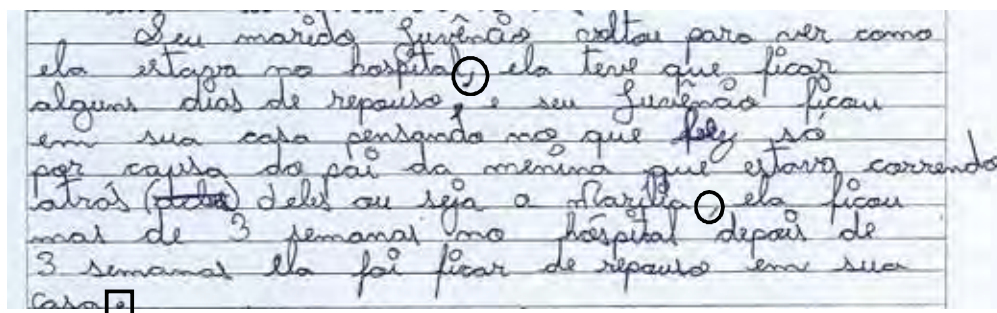 Seu marido Juvêncio voltou para ver como
ela estava no hospital, ela teve que ficar
alguns dias de repouso, e seu Juvêncio ficou
em sua casa pensando no que fez só
por causa do pai da menina que estava correndo
atrás () deles ou seja a Marilia, ela ficou
mas de 3 semanas no hóspital depois de
3 semanas ela foi ficar de repouso em sua
casa.